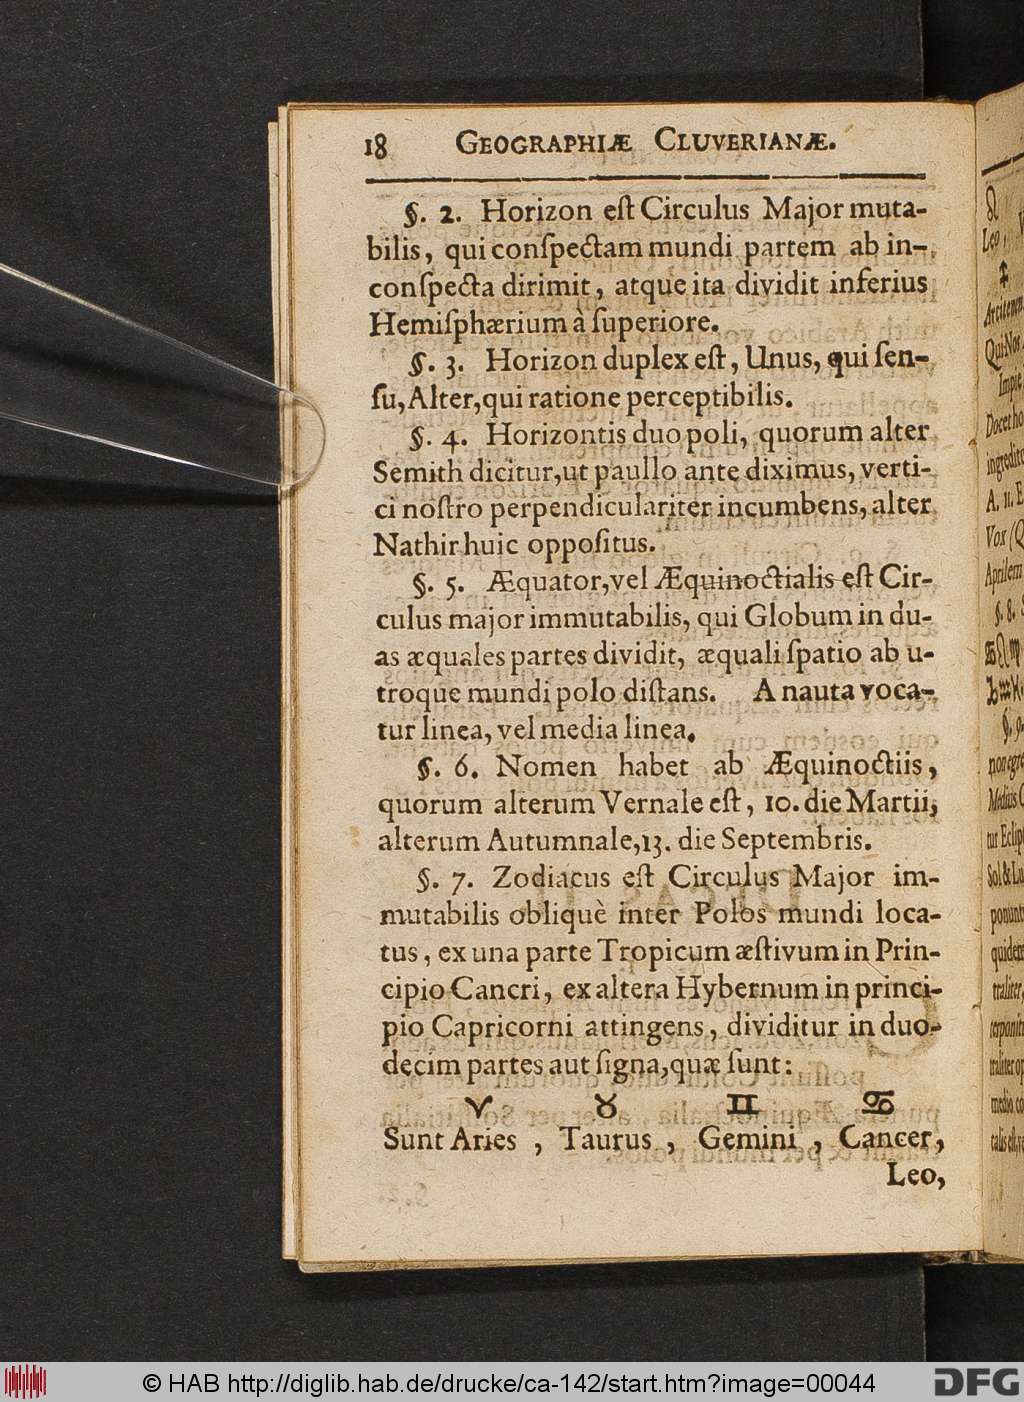 18 GEOGRAPHIÆ CLUVERIANÆ.
§. 2. Horizon eſt Circulus Major muta-
bilis, qui conſpectam mundi partem ab in-
conſpecta dirimit, atque ita dividit inferius
Hemiſphærium à ſuperiore.
§. 3. Horizon duplex eſt, Unus, qui ſen-
ſu, Alter, qui ratione perceptibilis.
§. 4. Horizontis duo poli, quorum alter
Semith dicitur, ut paullo ante diximus, verti-
ci noſtro perpendiculariter incumbens, alter
Nathir huic oppoſitus.
§. 5. Æquator, vel Æquinoctialis eſt Cir-
culus major immutabilis, qui Globum in du-
as æquales partes dividit, æquali ſpatio ab u-
troque mundi polo diſtans. A nauta voca-
tur linea, vel media linea.
§. 6. Nomen habet ab Æquinoctiis,
quorum alterum Vernale eſt, 10. die Martii,
alterum Autumnale, 13. die Septembris.
§. 7. Zodiacus eſt Circulus Major im-
mutabilis obliquè inter Polos mundi loca-
tus, ex una parte Tropicum æſtivum in Prin-
cipio Cancri, ex altera Hybernum in princi-
pio Capricorni attingens, dividitur in duo-
decim partes aut ſigna, quæ ſunt:
♈ ♉ ♊ ♋
Sunt Aries, Taurus, Gemini, Cancer,
Leo,
♌
Leo,
Qui Nos
Impie
Docet ho
A. 11. E
Vox (Q
Aprilem
§. 8.
§. 9.
Medius C
tur Eclip
Sol & Lu
quidem
medio co
© HAB http://diglib.hab.de/drucke/ca-142/start.htm?image=00044
DFG